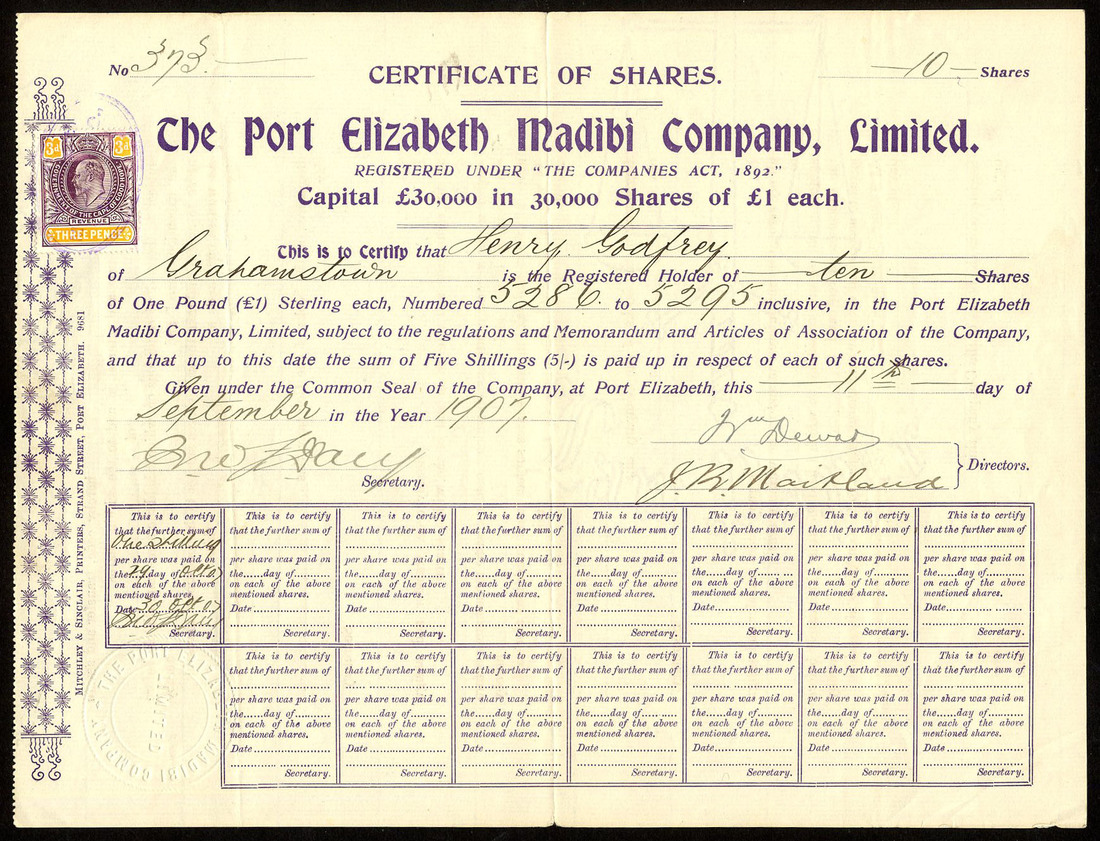 No 373.
CERTIFICATE OF SHARES.
10 Shares
The Port Elizabeth Madibi Company, Limited.
REGISTERED UNDER "THE COMPANIES ACT, 1892."
Capital £30,000 in 30,000 Shares of £1 each.
3d 3d
REVENUE
THREE PENCE
This is to Certify that Henry Godfrey
of Grahamstown is the Registered Holder of ten Shares
of One Pound (£1) Sterling each, Numbered 5286 to 5295 inclusive, in the Port Elizabeth
Madibi Company, Limited, subject to the regulations and Memorandum and Articles of Association of the Company,
and that up to this date the sum of Five Shillings (5/-) is paid up in respect of each of such shares.
Given under the Common Seal of the Company, at Port Elizabeth, this 11th day of
September in the Year 1907.
Wm Dewar
J.R. Maitland
Directors.
Secretary.
This is to certify This is to certify This is to certify This is to certify This is to certify This is to certify This is to certify This is to certify
that the further sum of that the further sum of that the further sum of that the further sum of that the further sum of that the further sum of that the further sum of that the further sum of
One Shilling
per share was paid on per share was paid on per share was paid on per share was paid on per share was paid on per share was paid on per share was paid on per share was paid on
the 29 day of Oct 07 the......day of the......day of the......day of the......day of the......day of the......day of the......day of
on each of the above on each of the above on each of the above on each of the above on each of the above on each of the above on each of the above on each of the above
mentioned shares. mentioned shares. mentioned shares. mentioned shares. mentioned shares. mentioned shares. mentioned shares. mentioned shares.
Date 30 Oct 07 Date Date Date Date Date Date Date
Secretary. Secretary. Secretary. Secretary. Secretary. Secretary. Secretary. Secretary.
This is to certify This is to certify This is to certify This is to certify This is to certify This is to certify This is to certify
that the further sum of that the further sum of that the further sum of that the further sum of that the further sum of that the further sum of that the further sum of
per share was paid on per share was paid on per share was paid on per share was paid on per share was paid on per share was paid on per share was paid on
the......day of the......day of the......day of the......day of the......day of the......day of the......day of
on each of the above on each of the above on each of the above on each of the above on each of the above on each of the above on each of the above
mentioned shares. mentioned shares. mentioned shares. mentioned shares. mentioned shares. mentioned shares. mentioned shares.
Date Date Date Date Date Date Date
Secretary. Secretary. Secretary. Secretary. Secretary. Secretary. Secretary.
THE PORT ELIZABETH MADIBI COMPANY
LIMITED
MITCHLEY & SINCLAIR, PRINTERS, STRAND STREET, PORT ELIZABETH. 9681